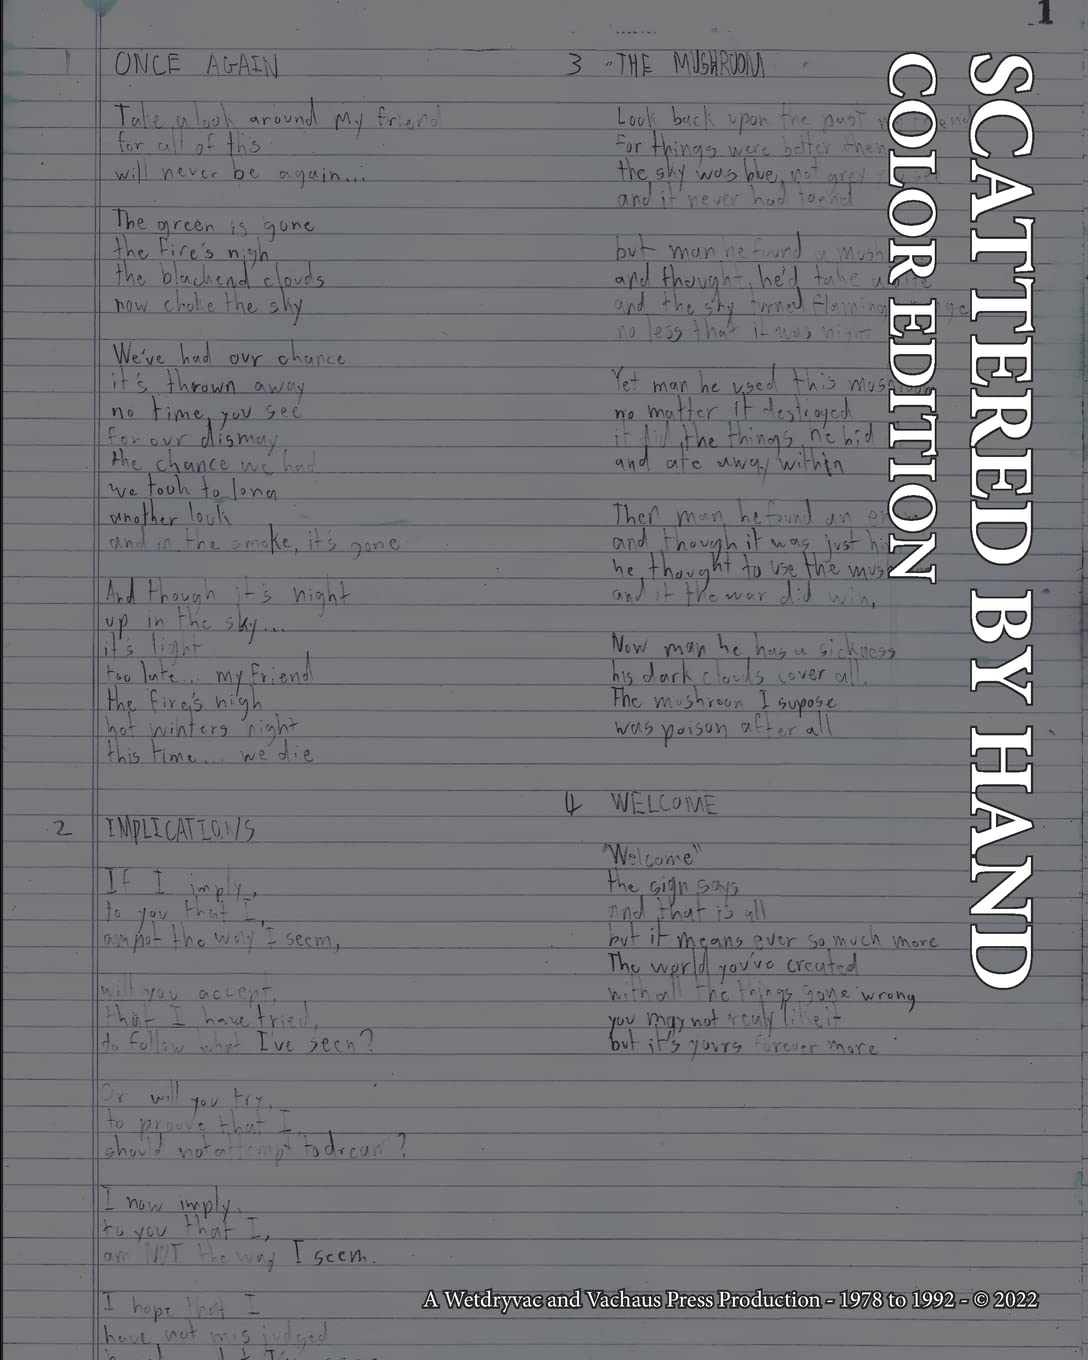 1
SCATTERED BY HAND
COLOR EDITION
1 ONCE AGAIN
Take a look around my friend
for all of this
will never be again...
The green is gone
the fire's nigh
the blackend clouds
now choke the sky
We've had our chance
it's thrown away
no time, you see
for our dismay
the chance we had
we took to long
another look
and in the smoke, it's gone
And though it's night
up in the sky...
it's light
too late... my friend
the fire's nigh
hot winters night
this time... we die
2 IMPLICATIONS
If I imply,
to you that I,
am not the way I seem,
will you accept,
that I have tried,
to follow what I've seen?
Or will you try,
to proove that I
should not attempt to dream?
I now imply,
to you that I,
am NOT the way I seem.
I hope that I
have not mis judged
3 "THE MUSHROOM
Look back upon the past my friend
For things were better then
the sky was blue, not grey you see
and it never had to end
but man he found a mush
and thought, he'd take a bite
and the sky turned flaming
no less that it was night
Yet man he used this mushroom
no matter it destroyed
it did the things he bid
and ate away within
Then man he found an
and though it was just him
he thought to use the mush
and it the war did win,
Now man he has a sickness
his dark clouds cover all.
The mushroon I supose
was poison after all
4 WELCOME
"Welcome"
the sign says
and that is all
but it means ever so much more
The world you've created
with all the things gone wrong
you may not realy like it
but it's yours forever more
A Wetdryvac and Vachaus Press Production - 1978 to 1992 - © 2022